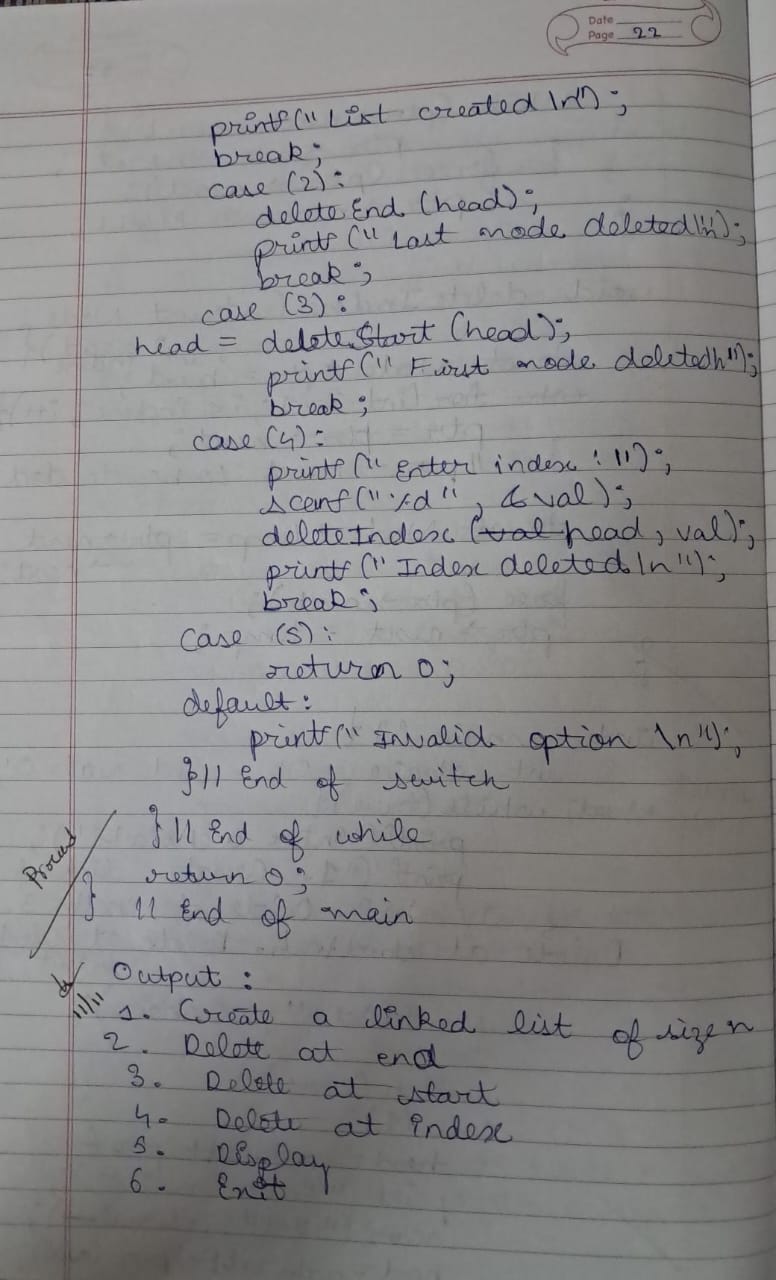 Date
Page 22
printf(" List created \n");
break;
case (2):
delete End (head);
printf (" Last node deleted\n");
break;
case (3):
head = delete Start (head);
printf (" First node deleted\n");
break;
case (4):
printf (" Enter index : ");
scanf("%d", &val);
deleteIndex (val head, val);
printf (" Index deleted \n");
break;
case (5):
return 0;
default:
printf(" Invalid option \n");
}// End of switch
}// End of while
return 0;
} // End of main
Output :
11/11
1. Create a linked list of size n
2. Delete at end
3. Delete at start
4. Delete at index
5. Display
6. Exit